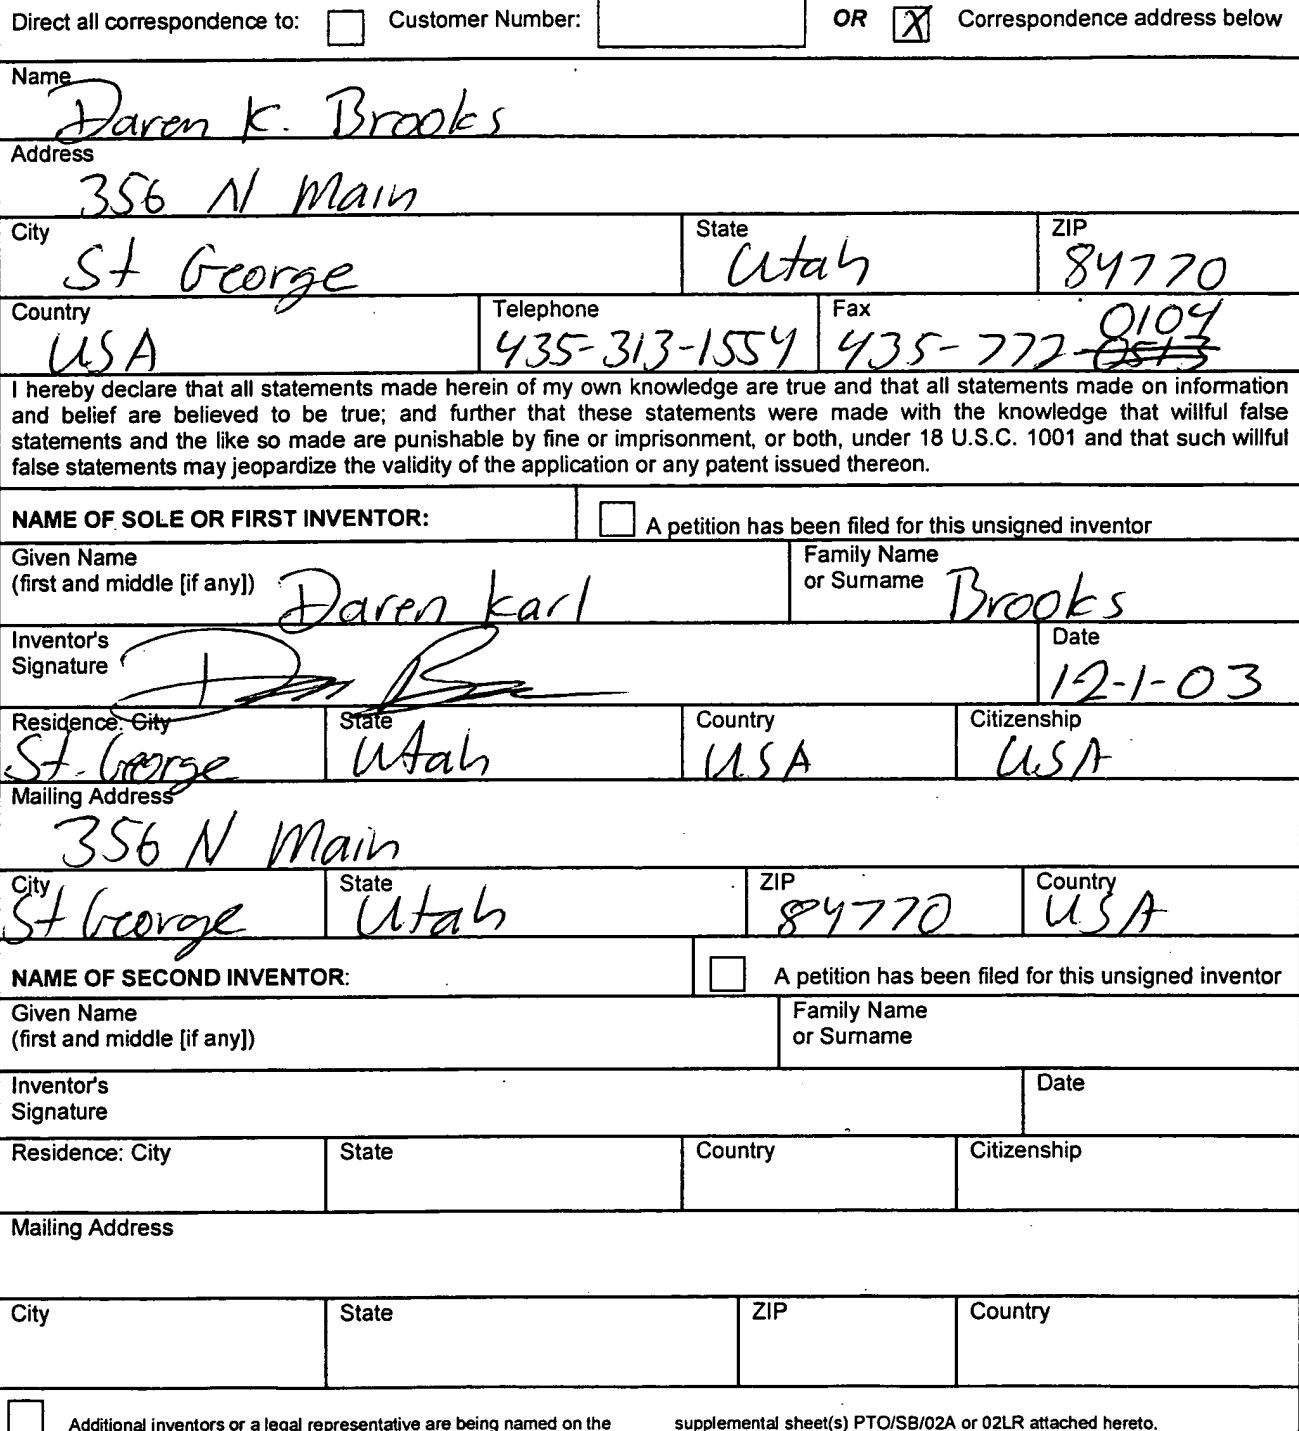 Direct all correspondence to: Customer Number: OR X Correspondence address below
Name
Daren K. Brooks
Address
356 N Main
City State ZIP
St George Utah 84770
Country Telephone Fax
0104
USA 435-313-1554 435-772-0513
I hereby declare that all statements made herein of my own knowledge are true and that all statements made on information
and belief are believed to be true; and further that these statements were made with the knowledge that willful false
statements and the like so made are punishable by fine or imprisonment, or both, under 18 U.S.C. 1001 and that such willful
false statements may jeopardize the validity of the application or any patent issued thereon.
NAME OF SOLE OR FIRST INVENTOR: A petition has been filed for this unsigned inventor
Given Name Family Name
(first and middle [if any]) Daren Karl or Surname Brooks
Inventor's Date
Signature 12-1-03
Residence: City State Country Citizenship
St. George Utah USA USA
Mailing Address
356 N Main
City State ZIP Country
St George Utah 84770 USA
NAME OF SECOND INVENTOR: A petition has been filed for this unsigned inventor
Given Name Family Name
(first and middle [if any]) or Surname
Inventor's Date
Signature
Residence: City State Country Citizenship
Mailing Address
City State ZIP Country
Additional inventors or a legal representative are being named on the supplemental sheet(s) PTO/SB/02A or 02LR attached hereto.